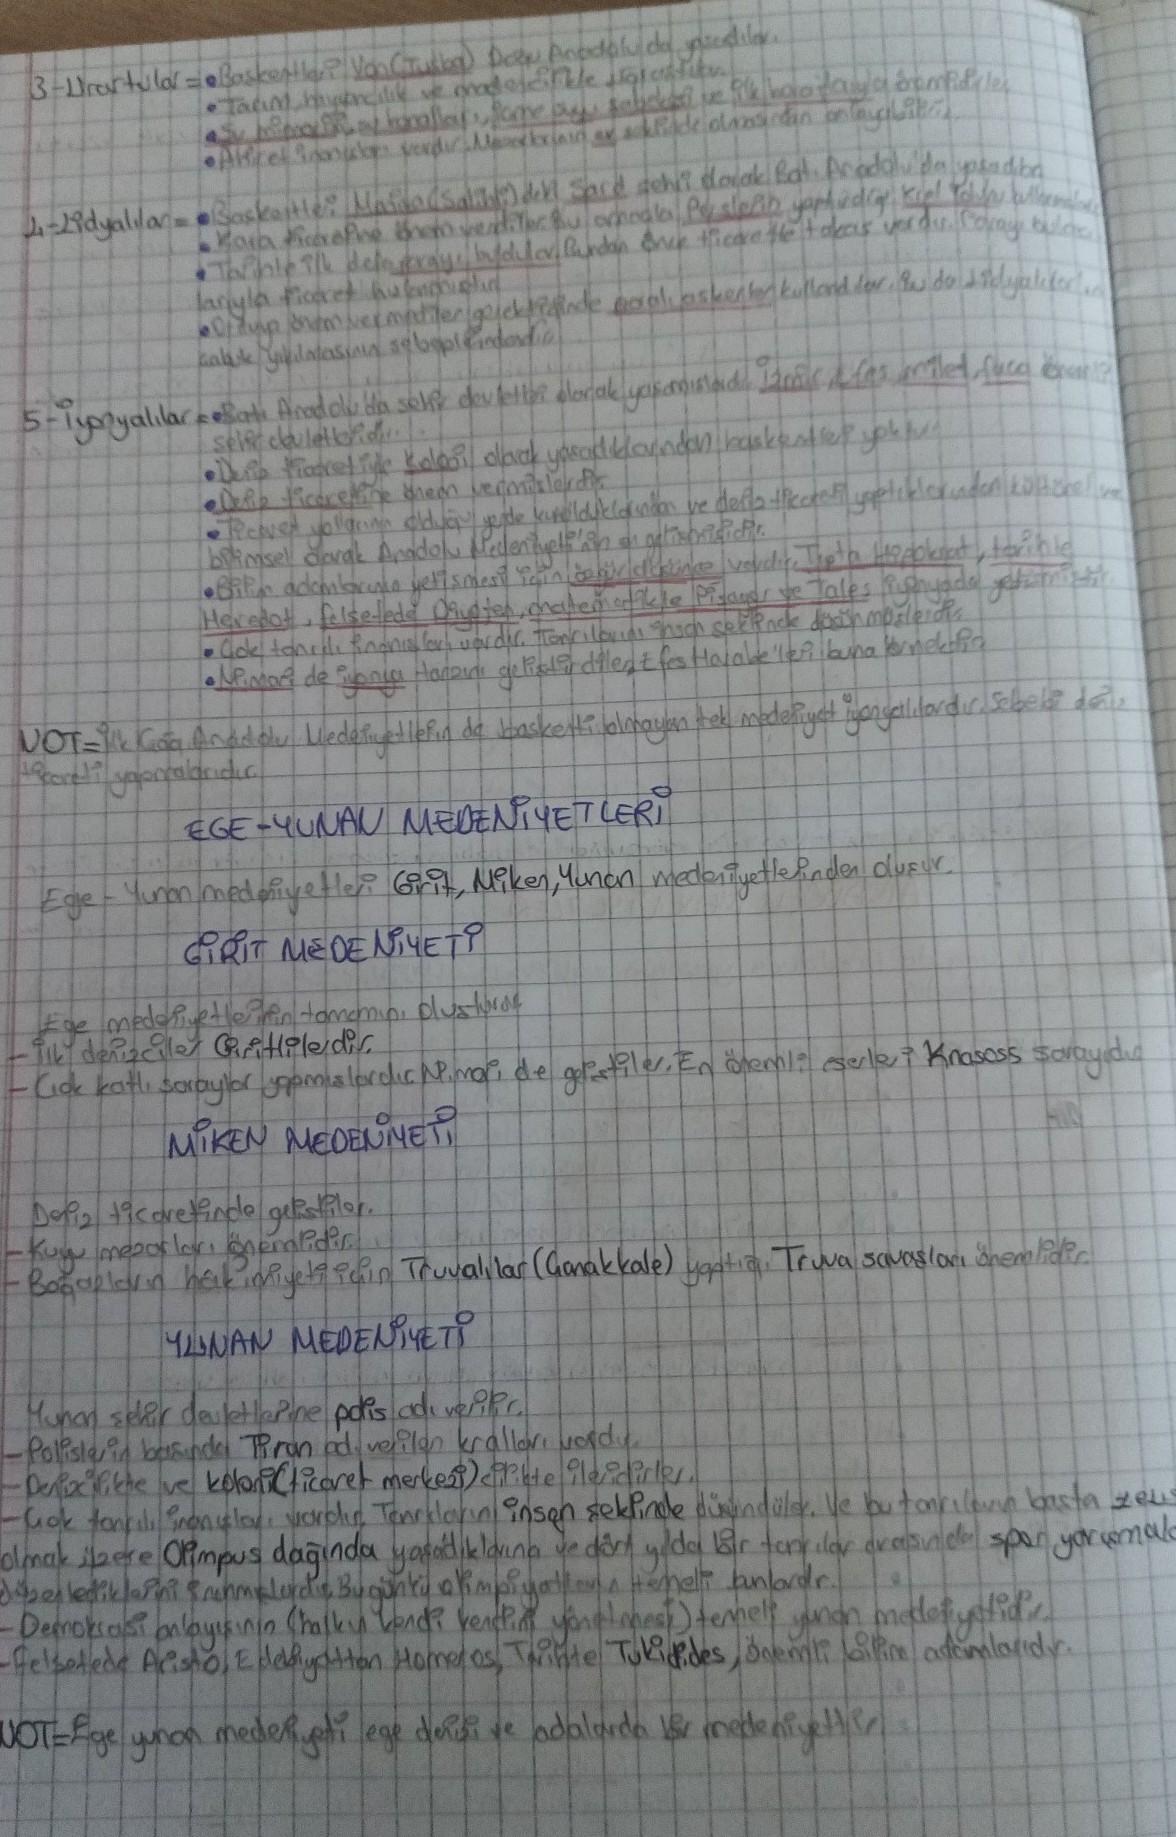 3-Urartular = • Başkentleri Van (Tuşba) Doğu Anadolu'da yaşadılar.
• Tarım, hayvancılık ve madencilikle
• Su mimarisi,
• Ahiret inançları vardır. Mezarların ev şeklinde olmasından anlaşılır.
4-Lidyalılar = • Başkentleri Manisa (Salihli) deki Sard şehri olarak Batı Anadolu'da yaşadılar
• Kara ticaretine önem verdiler. Bu amaçla Perslerin yaptırdığı Kral Yolu'nu
• Tarihte ilk defa parayı buldular. Bundan önce ticarette takas vardı. Parayı
larıyla ticaret
• Orduya önem vermediler gerektiğinde paralı askerler kullandılar. Bu da Lidyalıların
çabuk yıkılmasının sebeplerindendir.
5-İyonyalılar = • Batı Anadolu'da şehir devletleri olarak yaşamışlardı. İzmir, Efes, milet, foça önemli
şehir devletleridir.
• Deniz ticaretiyle koloni olarak yaşadıklarından başkentleri yoktur
• Deniz ticaretine önem vermişlerdir.
• Ticaret yollarının olduğu yerde kurulduklarından ve deniz ticareti yaptıklarından kültürel ve
bilimsel olarak Anadolu Medeniyeti'nin en gelişmişidir.
• Bilim adamlarının yetişmesi için özgür düşünce vardır. Tıpta Hipokrat, tarihte
Heredot, felsefede Diyojen, matematikte Pisagor ve Tales İyonyada yetişmiştir.
• Çok tanrılı inanışları vardır. Tanrılarını insan şeklinde düşünmüşlerdir.
• Mimari de iyonya Efes Harabe'leri buna örnektir
NOT = İlk Çağ Anadolu Medeniyetlerin de başkenti olmayan tek medeniyet iyonyalılardır. Sebebi deniz
ticareti yapmalarıdır.
EGE-YUNAN MEDENİYETLERİ
Ege-Yunan medeniyetleri Girit, Miken, Yunan medeniyetlerinden oluşur.
GİRİT MEDENİYETİ
Ege medeniyetlerinin tamamını oluşturur
- İlk denizciler Giritlilerdir.
- Çok katlı saraylar yapmışlardır. Mimari de geliştiler. En önemli eserleri Knasoss sarayıdır
MİKEN MEDENİYETİ
Deniz ticaretinde geliştiler.
- Kuyu mezarları önemlidir.
- Boğazların hakimiyeti için Truvalılar (Çanakkale) yaptığı Truva savaşları önemlidir.
YUNAN MEDENİYETİ
Yunan şehir devletlerine polis adı verilir.
- Polislerin başında Tiran adı verilen krallar vardı.
- Denizcilikte ve koloni (ticaret merkezi) cilikte ileridirler.
- Çok tanrılı inanışları vardır. Tanrılarını insan şeklinde düşündüler. Ve bu tanrıların başta zeus
olmak üzere Olimpus dağında yaşadıklarına ve dört yılda bir tanrılar arasında spor yarışmaları
düzenlediklerini inanmışlardır. Bugünkü olimpiyatların temeli bunlardır.
- Demokrasi anlayışının (halkın kendi kendini yönetmesi) temeli yunan medeniyetidir.
- Felsefede Aristo, Edebiyattan Homeros, Tarihte Tukidides, önemli bilim adamlarıdır.
NOT = Ege yunan medeniyeti ege denizi ve adalarda bir medeniyettir